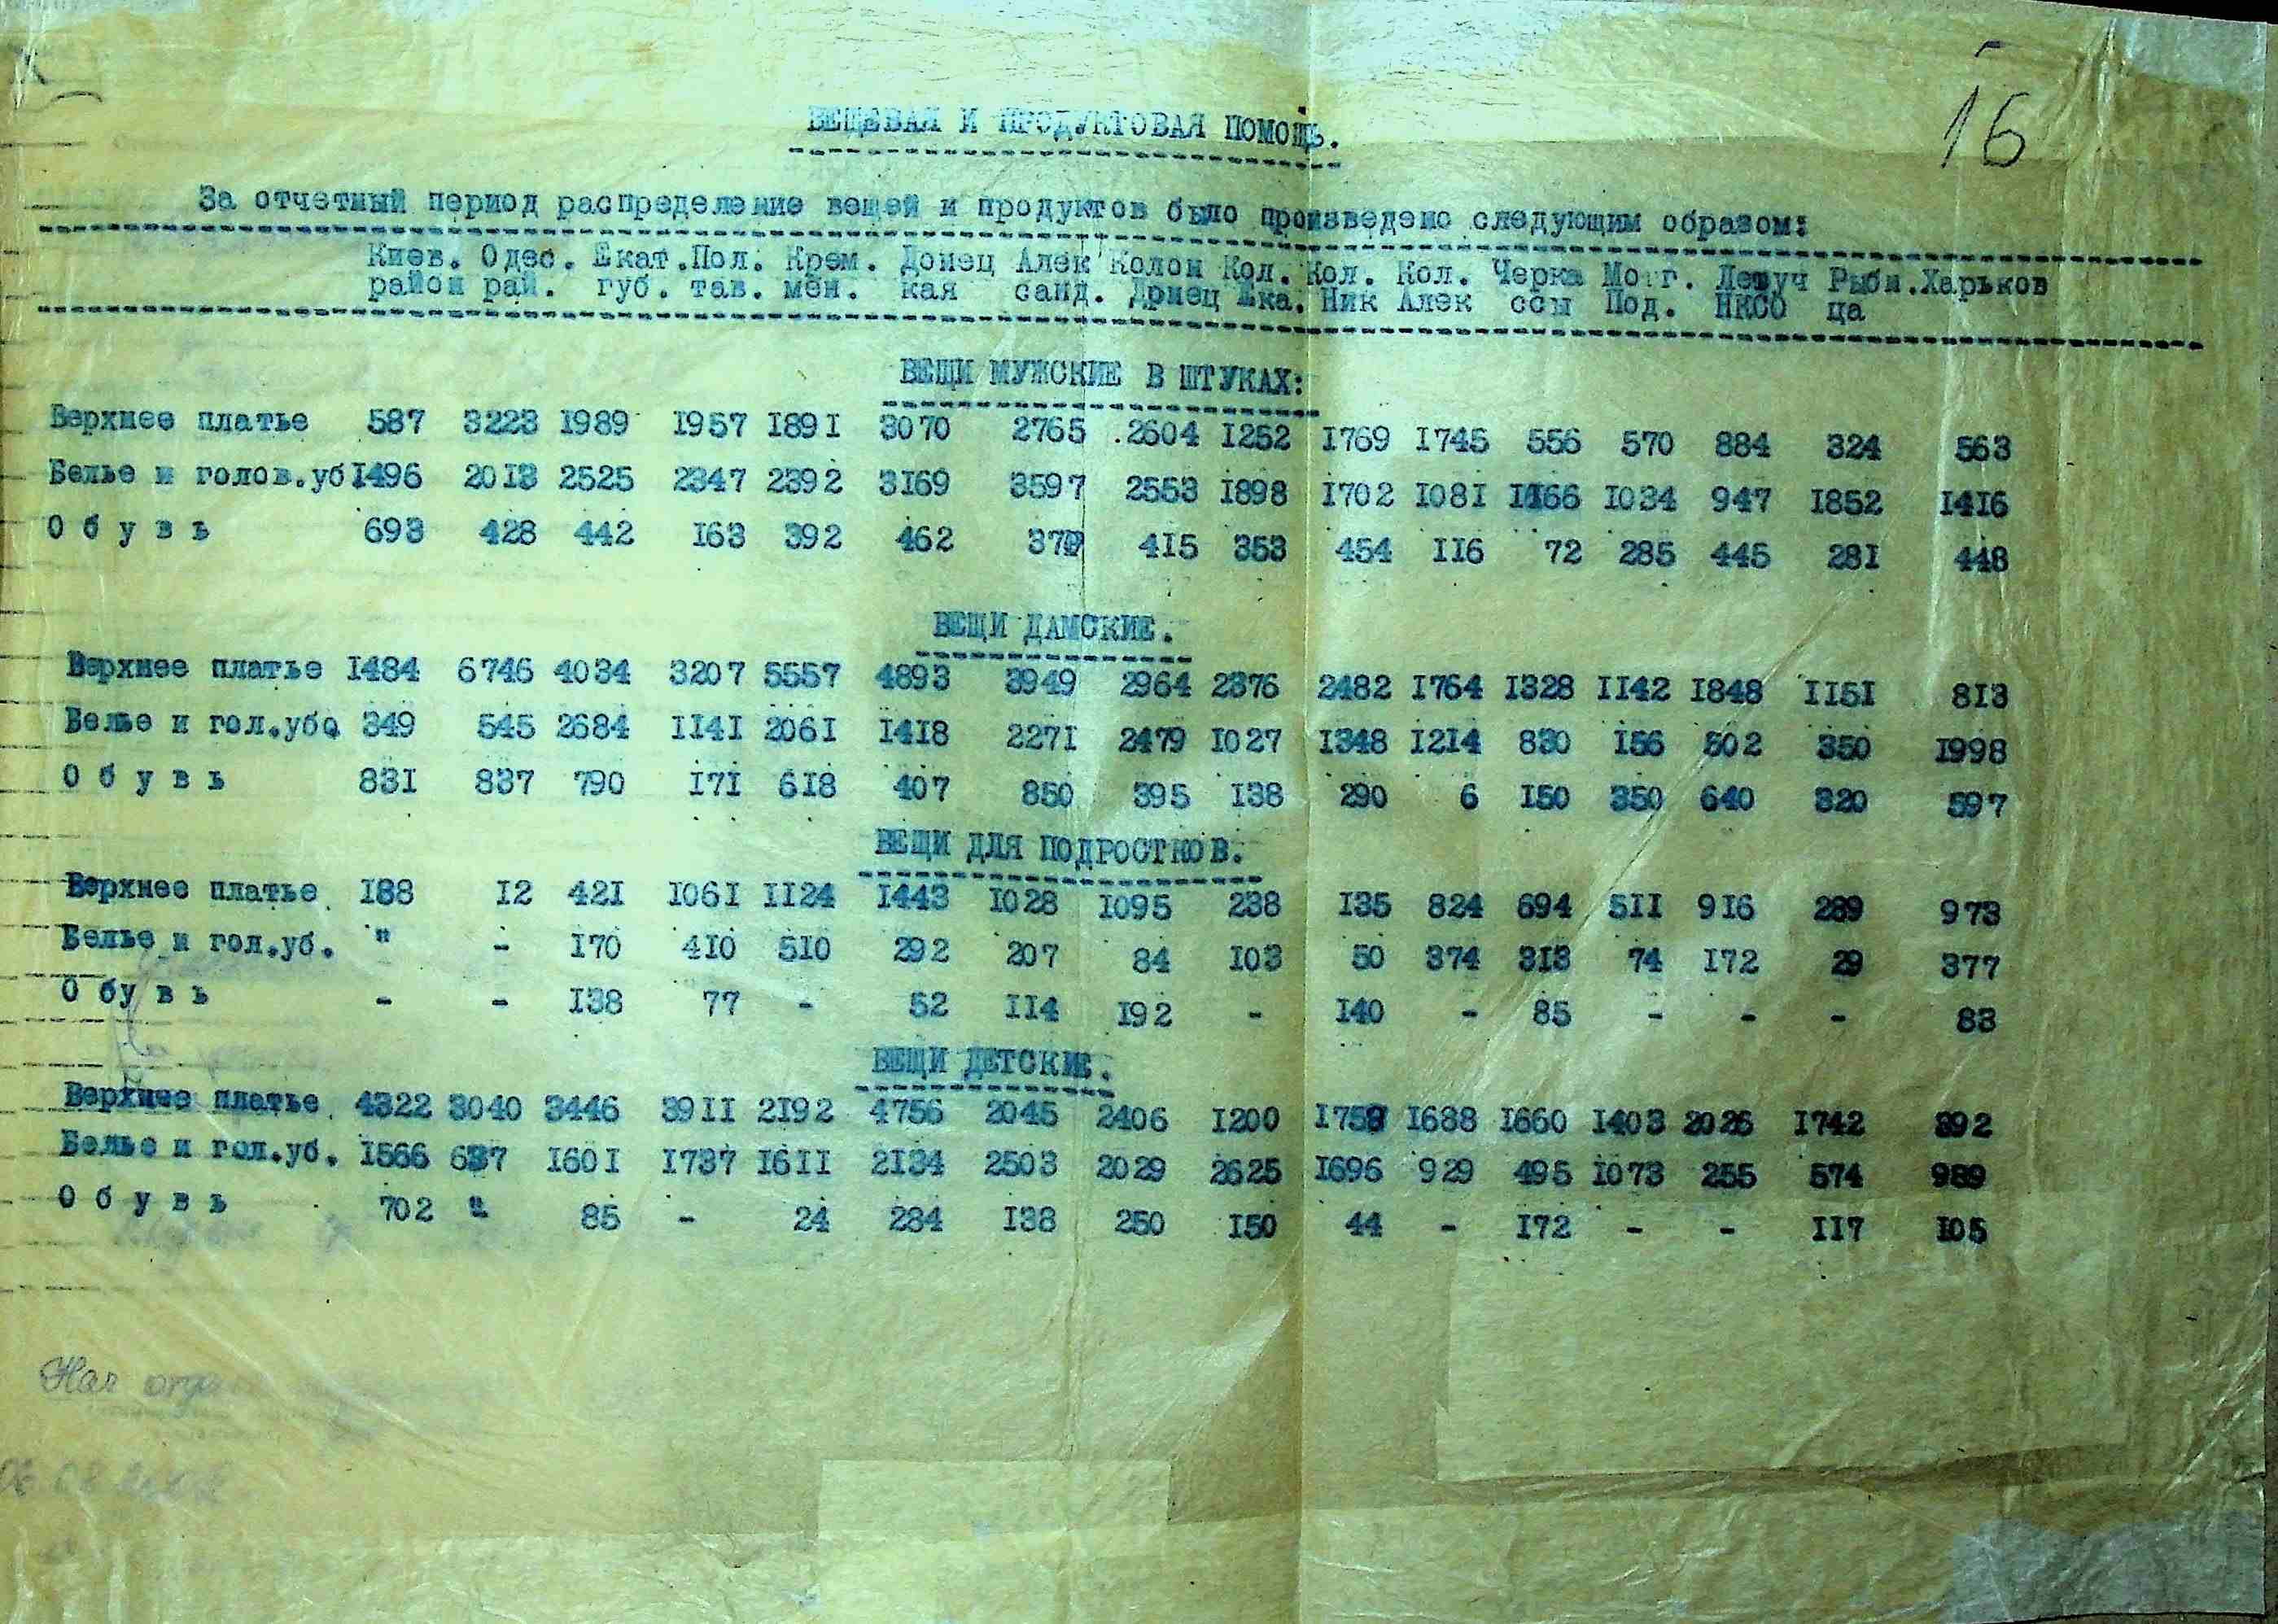 16
ВЕЩЕВАЯ И ПРОДУКТОВАЯ ПОМОЩЬ.
За отчетный период распределение вещей и продуктов было произведено следующим образом:
Киев. Одес. Екат. Пол. Крем. Донец Алек Колон Кол. Кол. Кол. Черка Мог. Рыбн. Харьков
район рай. губ. тав. мен. кая санд. Ека. Ник Алек ссы Под. НКСО ца
ВЕЩИ МУЖСКИЕ В ШТУКАХ:
Верхнее платье 587 3223 1989 1957 1891 3070 2765 2604 1252 1769 1745 556 570 884 324 563
Белье и голов.уб 1496 2013 2525 2347 2392 3169 3597 2553 1898 1702 1081 1166 1034 947 1852 1416
О б у в ь 693 428 442 163 392 462 415 353 454 116 72 285 445 281 448
ВЕЩИ ДАМСКИЕ.
Верхнее платье 1484 6746 4034 3207 5557 4893 3949 2964 2376 2482 1764 1328 1142 1848 1151 813
Белье и гол.убо 349 545 2684 1141 2061 1418 2271 2479 1027 1348 1214 830 156 502 350 1998
О б у в ь 831 837 790 171 618 407 850 395 138 290 6 150 350 640 320 597
ВЕЩИ ДЛЯ ПОДРОСТКОВ.
Верхнее платье 188 12 421 1061 1124 1443 1028 1095 238 135 824 694 511 916 289 973
Белье и гол.уб. " - 170 410 510 292 207 84 103 50 374 313 74 172 29 377
О б у в ь - - 138 77 - 52 114 192 - 140 - 85 - - - 83
ВЕЩИ ДЕТСКИЕ.
Верхнее платье 4322 3040 3446 3911 2192 4756 2045 2406 1200 1758 1688 1660 1403 2026 1742 892
Белье и гол.уб. 1566 637 1601 1737 1611 2134 2503 2029 2625 1696 929 495 1073 255 574 989
О б у в ь 702 " 85 - 24 284 138 250 150 44 - 172 - - 117 105